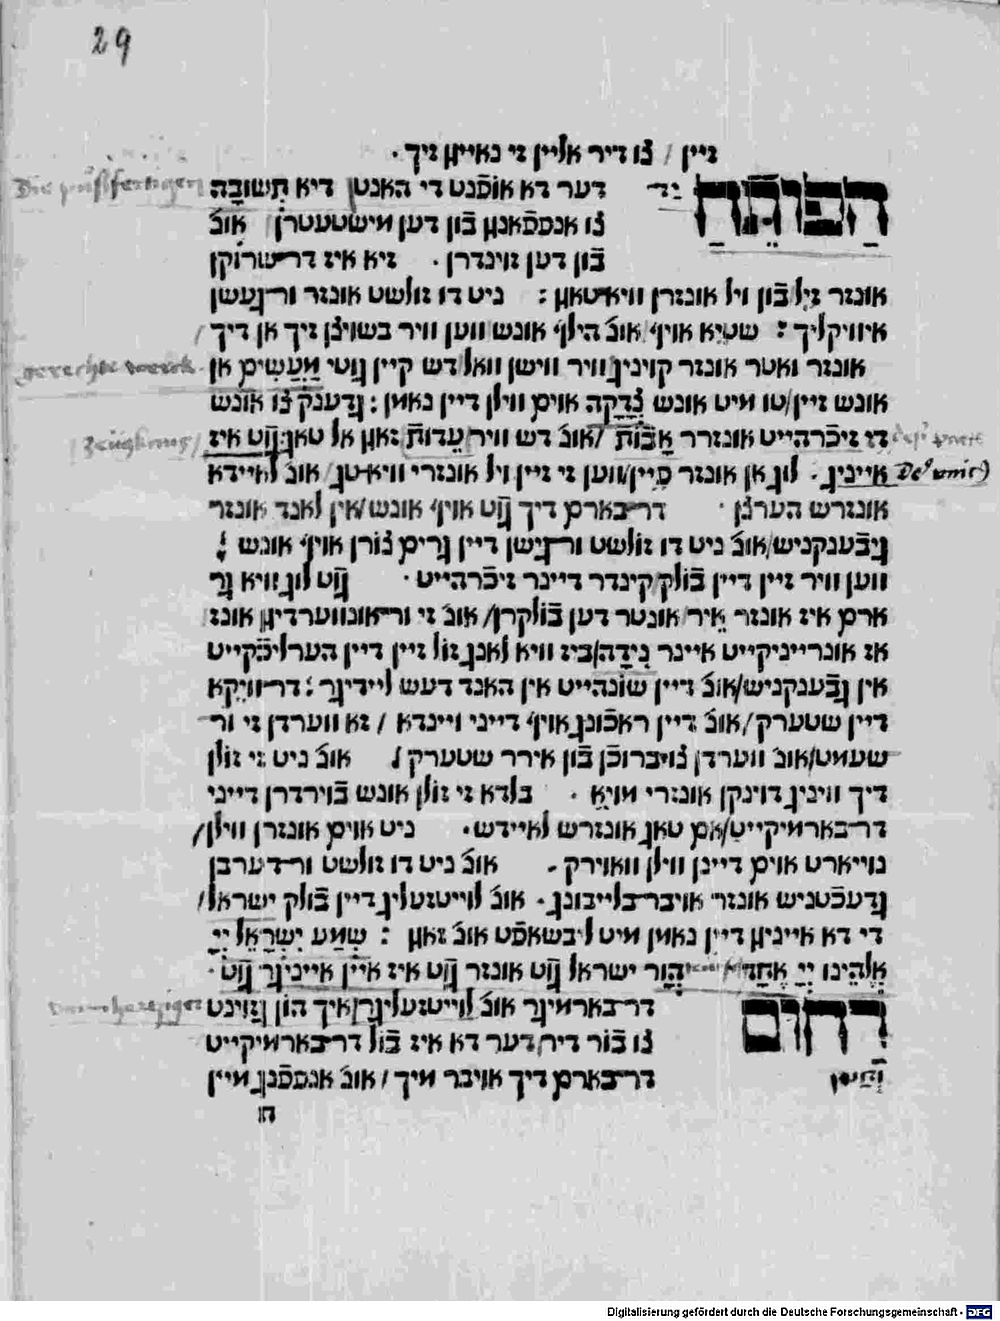 29
זיין / צו דיר אליין זי נאייגן זיך.
הַפּוֹתֵחַ יָד דער דא אופֿנט די האנט דיא תְּשׁוּבָה
Die pußfertigen
צו אנפפֿאנגן בֿון דען מישטעטרן אונ'
בֿון דען זוינדרן. זיא איז דרשרוקן
אונזר זיל בֿון ויל אונזרן וויאטאגן: ניט דו זולשט אונזר ורגעשן
איוויקליך: שטיא אויף אונ' הילף אונש ווען וויר בשויצן זיך אן דיך
אונזר ואטר אונזר קויניג וויר ווישן וואל דש קיין גוטי מַעֲשִׂים אן
gerechte werck
אונש זיין/טו מיט אונש צְדָקָה אוים ווילן דיין נאמן: גדענק צו אונש
די זיכֿרהייט אונזרר אָבוֹת /אונ' דש וויר עֵדוּת זאגן אל טאג גֿוט איז
Zeügknus
אייניג. לוג אן אונזר פיין/ווען זי זיין ויל אונזרי וויאטג/ אונ' לאיידא
אונזרש הערצן. דרבארם דיך גֿוט אויף אונש/אין לאנד אונזר
גיבֿענקניש/אונ' ניט דו זולשט ורגישן דיין גרים צורן אויף אונש
ווען וויר זיין דיין בֿולק קינדר דיינר זיכֿרהייט. גֿוט לוג וויא גר
ארם איז אונזר איר/ אונטר דען בֿולקרן/ אונ' זי וראונווערדיגן אונז
אז אונרייניקייט איינר נִידָה/ביז וויא לאנג זול זיין דיין הערליכֿקייט
אין גבֿענקניש/אונ' דיין שונהייט אין האנד דעש ליידיגר: דרוויקא
דיין שטערק/אונ' דיין ראכֿונג אויף דייני ויינדא / זא ווערדן זי ור
שעמט/אונ' ווערדן צוברוכֿן בֿון אירר שטערק/ אונ' ניט זי זולן
דיך וויניג דוינקן אונזרי מויא. בלדא זי זולן אונש בֿוירדרן דייני
דרבארמיקייט/אם טאג אונזרש לאיידש. ניט אוים אונזרן ווילן/
נוייארט אוים דיינן ווילן וואוירק. אונ' ניט דו זולשט ורדערבן
גדעכֿטניש אונזר אויברבלייבונג. אונ' לוייטזעליג דיין בֿולק ישראל/
די דא אייניגן דיין נאמן מיט ליבשאפֿט אונ' זאגן: שְׁמַע יִשְׂרָאֵל יְיָ
אֱלֹהֵינוּ יְיָ אֶחָד הור ישראל גֿוט אונזר גֿוט איז איין אייניגר גֿוט.
רַחוּם דרבארמיגר אונ' לוייטזעליגר/איך הון גזוינט
צו בֿור דיר/דער דא איז בֿול דרבארמיקייט
וְחַנּוּן דרבארם דיך אויבר מיך/ אונ' אנפפֿנג מיין
Digitalisierung gefördert durch die Deutsche Forschungsgemeinschaft - DFG